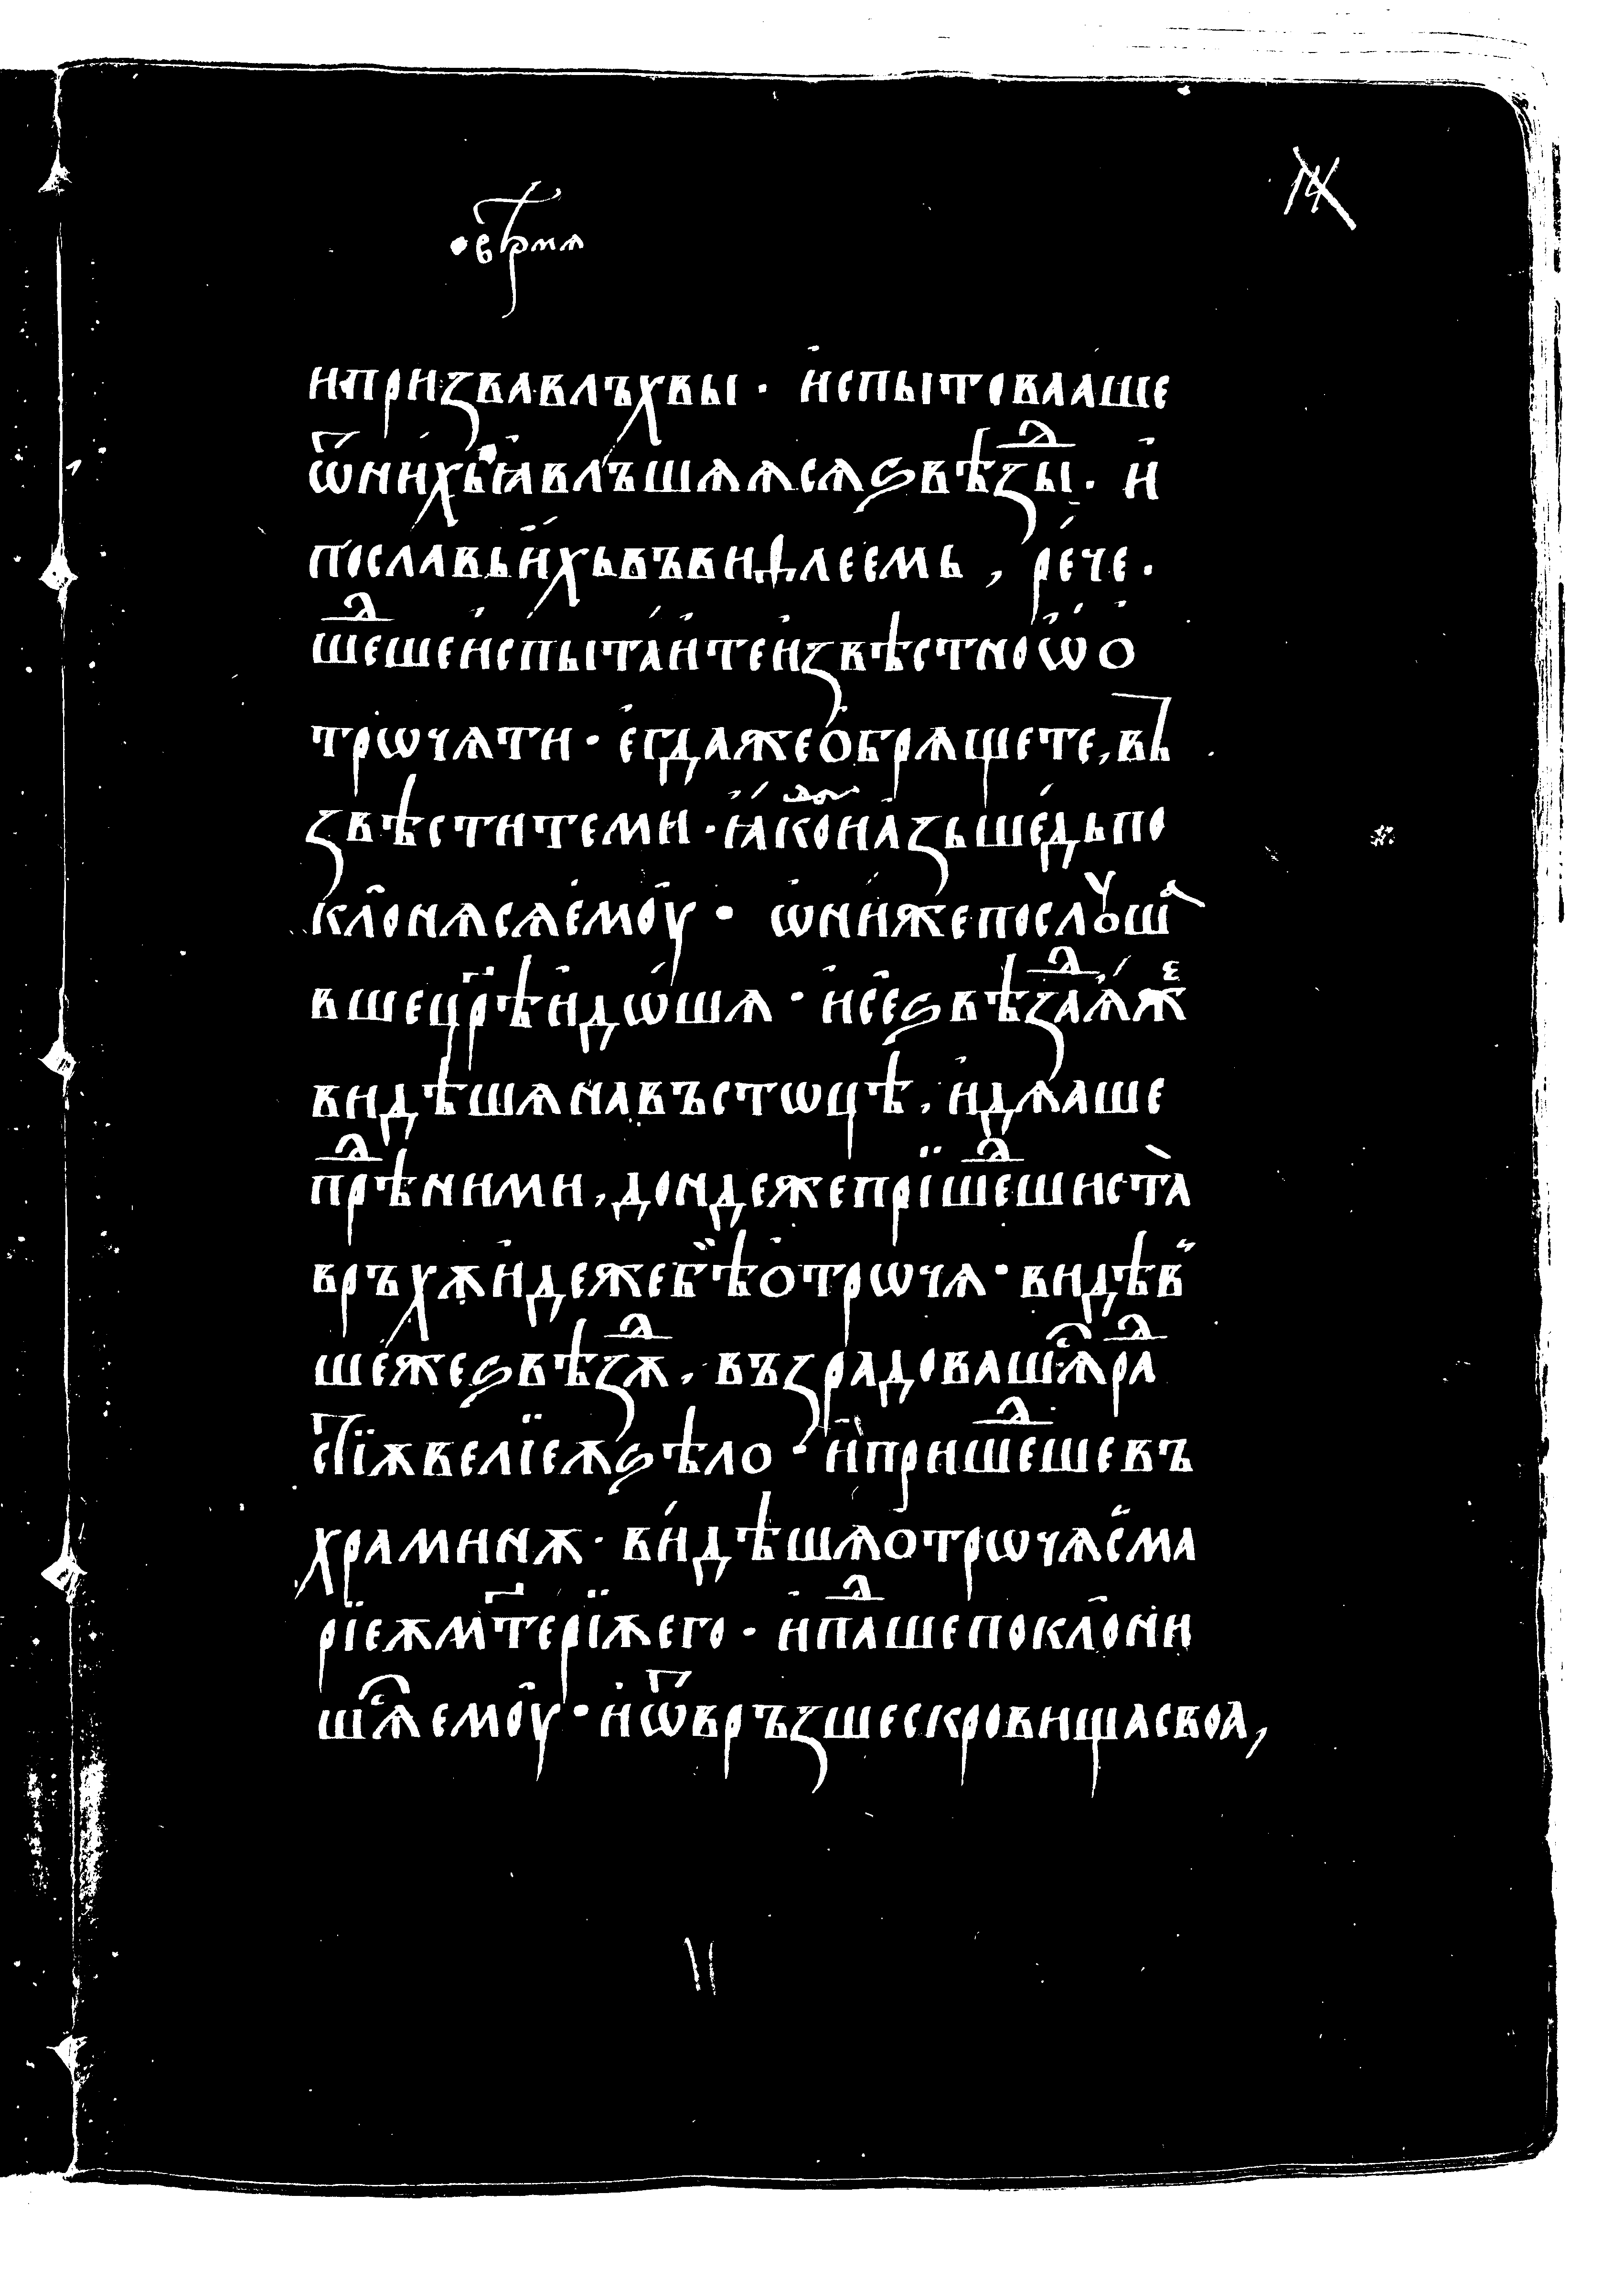 и призвавлъхвы · и҆спытоваше
ѿнихьꙗвлъшѧѧсѧѕвѣꙁⷣы · и҆
пославьи҆хьвъвиѳлеемь , ре́че ·
шеⷣшеи҆спыта́и҆теи҆ꙁвѣстноѡ҆о҆
трѡчѧти · є҆гдажеѻ҆брѧщете, въ
ꙁвѣститеми · ꙗ҆коⷣои҆аꙁьше́дьпо
кло҆нѧсѧє҆моу · ѡ҆ни́жепослꙋшаⷡ
вшецр҃ѣи҆дѡ́шѧ · и҆се҆ѕвѣꙁⷣаѧ҆́жеⷤ
видѣшѧнавъстѡцѣ , и҆дѧ́аше
прⷣѣними , дондежепрїшеⷣшиста̀
връхѫи҆дежебѣ̏ѻ҆трѡчѧ · видѣв̏
ше́жеѕвѣꙁⷣѫ , въꙁрадовашѧⷭ҇раⷣ
стїѫвелїеѫѕѣло · и҆пришеⷣшевъ
храминѫ · ви́дѣшѧотрѡчѧс̏ма
рїеѫмт҃ерїѫего · и҆паⷣшепокло҆ни
шѧⷭ҇ємо҆у · и҆ѿвръꙁшескровищасвоа ,